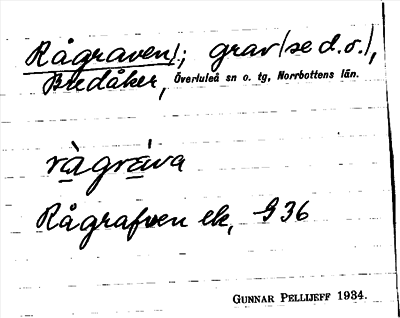 Rågraven/; grav (se d. o.),
Bredåker, Överluleå sn o. tg, Norrbottens län.
ràgráva
Rågrafven ek, G 36
GUNNAR PELLIJEFF 1934.